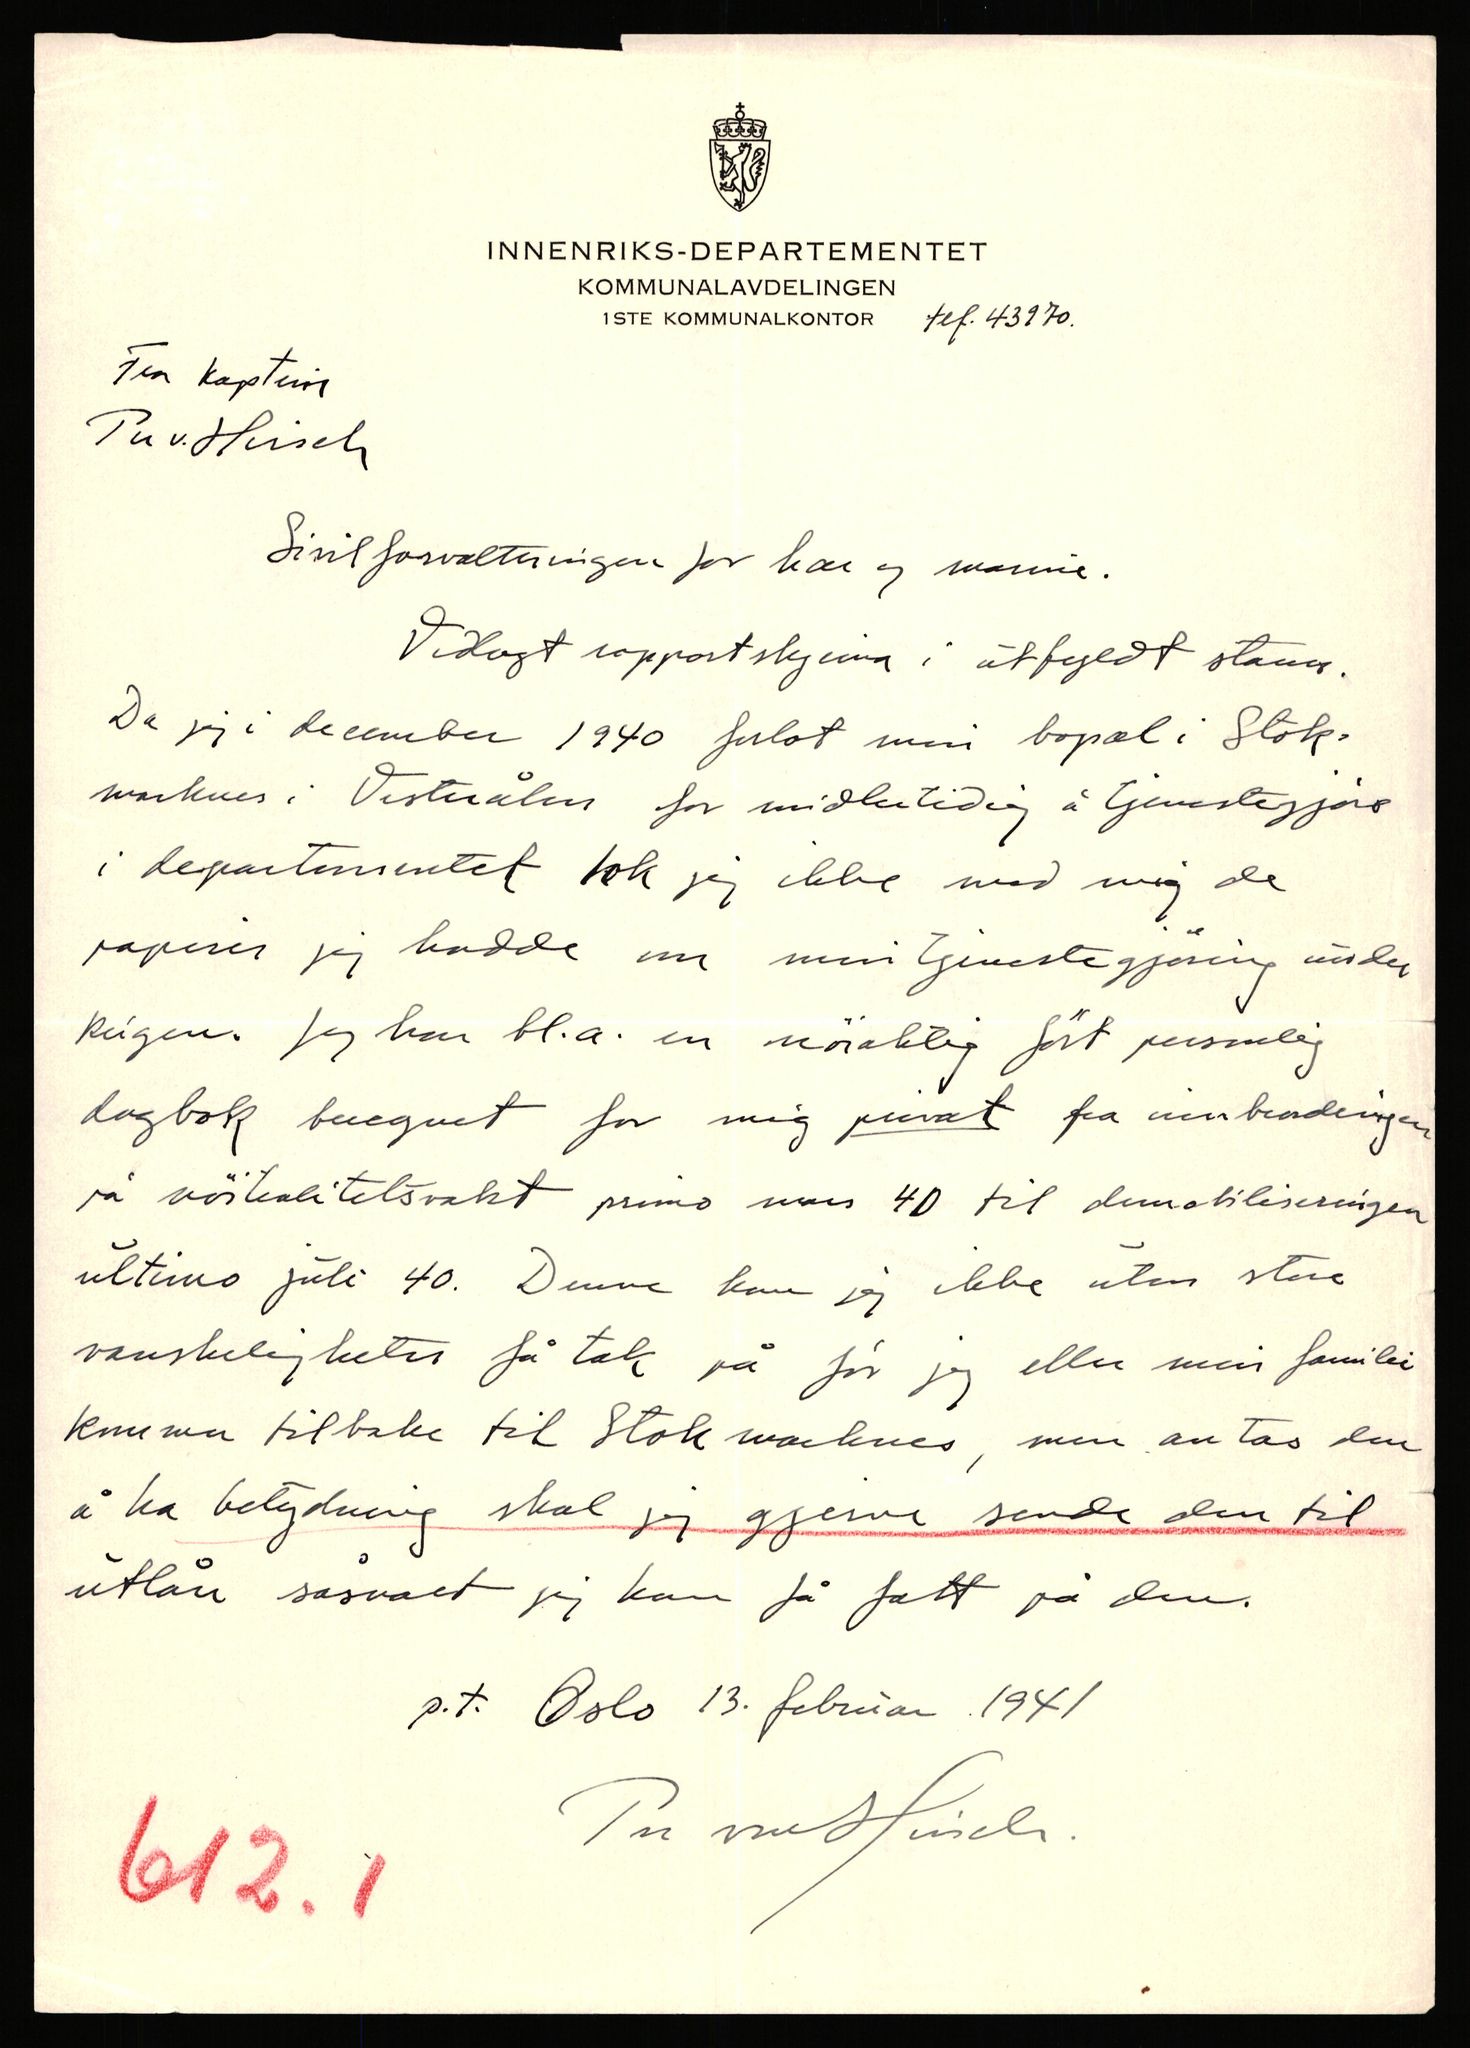 INNENRIKS-DEPARTEMENTET
KOMMUNALAVDELINGEN
1STE KOMMUNALKONTOR tlf. 43970.
Fra kaptein
Per v. Hirsch
Sivilforvaltningen for hær og marine.
Vedlagt rapportskjema i utfyldt stann.
Da jeg i december 1940 forlot min bopæl i Stok-
marknes i Vesterålen for midlertidig å tjenestegjøre
i departementet tok jeg ikke med mig de
papirer jeg hadde om min tjenestegjöring under
krigen. Jeg har bl.a. en nöiaktig fört personlig
dagbok beregnet for mig privat fra innbeordringen
på nöitralitetsvakt primo mars 40 til demobiliseringen
ultimo juli 40. Denne kan jeg ikke uten store
vanskeligheter få tak på för jeg eller min familie
kommer tilbake til Stokmarknes, men antas den
å ha betydning skal jeg gjerne sende den til
utlån såsnart jeg kan få fatt på den.
p.t. Oslo 13. februar 1941
Per von Hirsch.
612.1